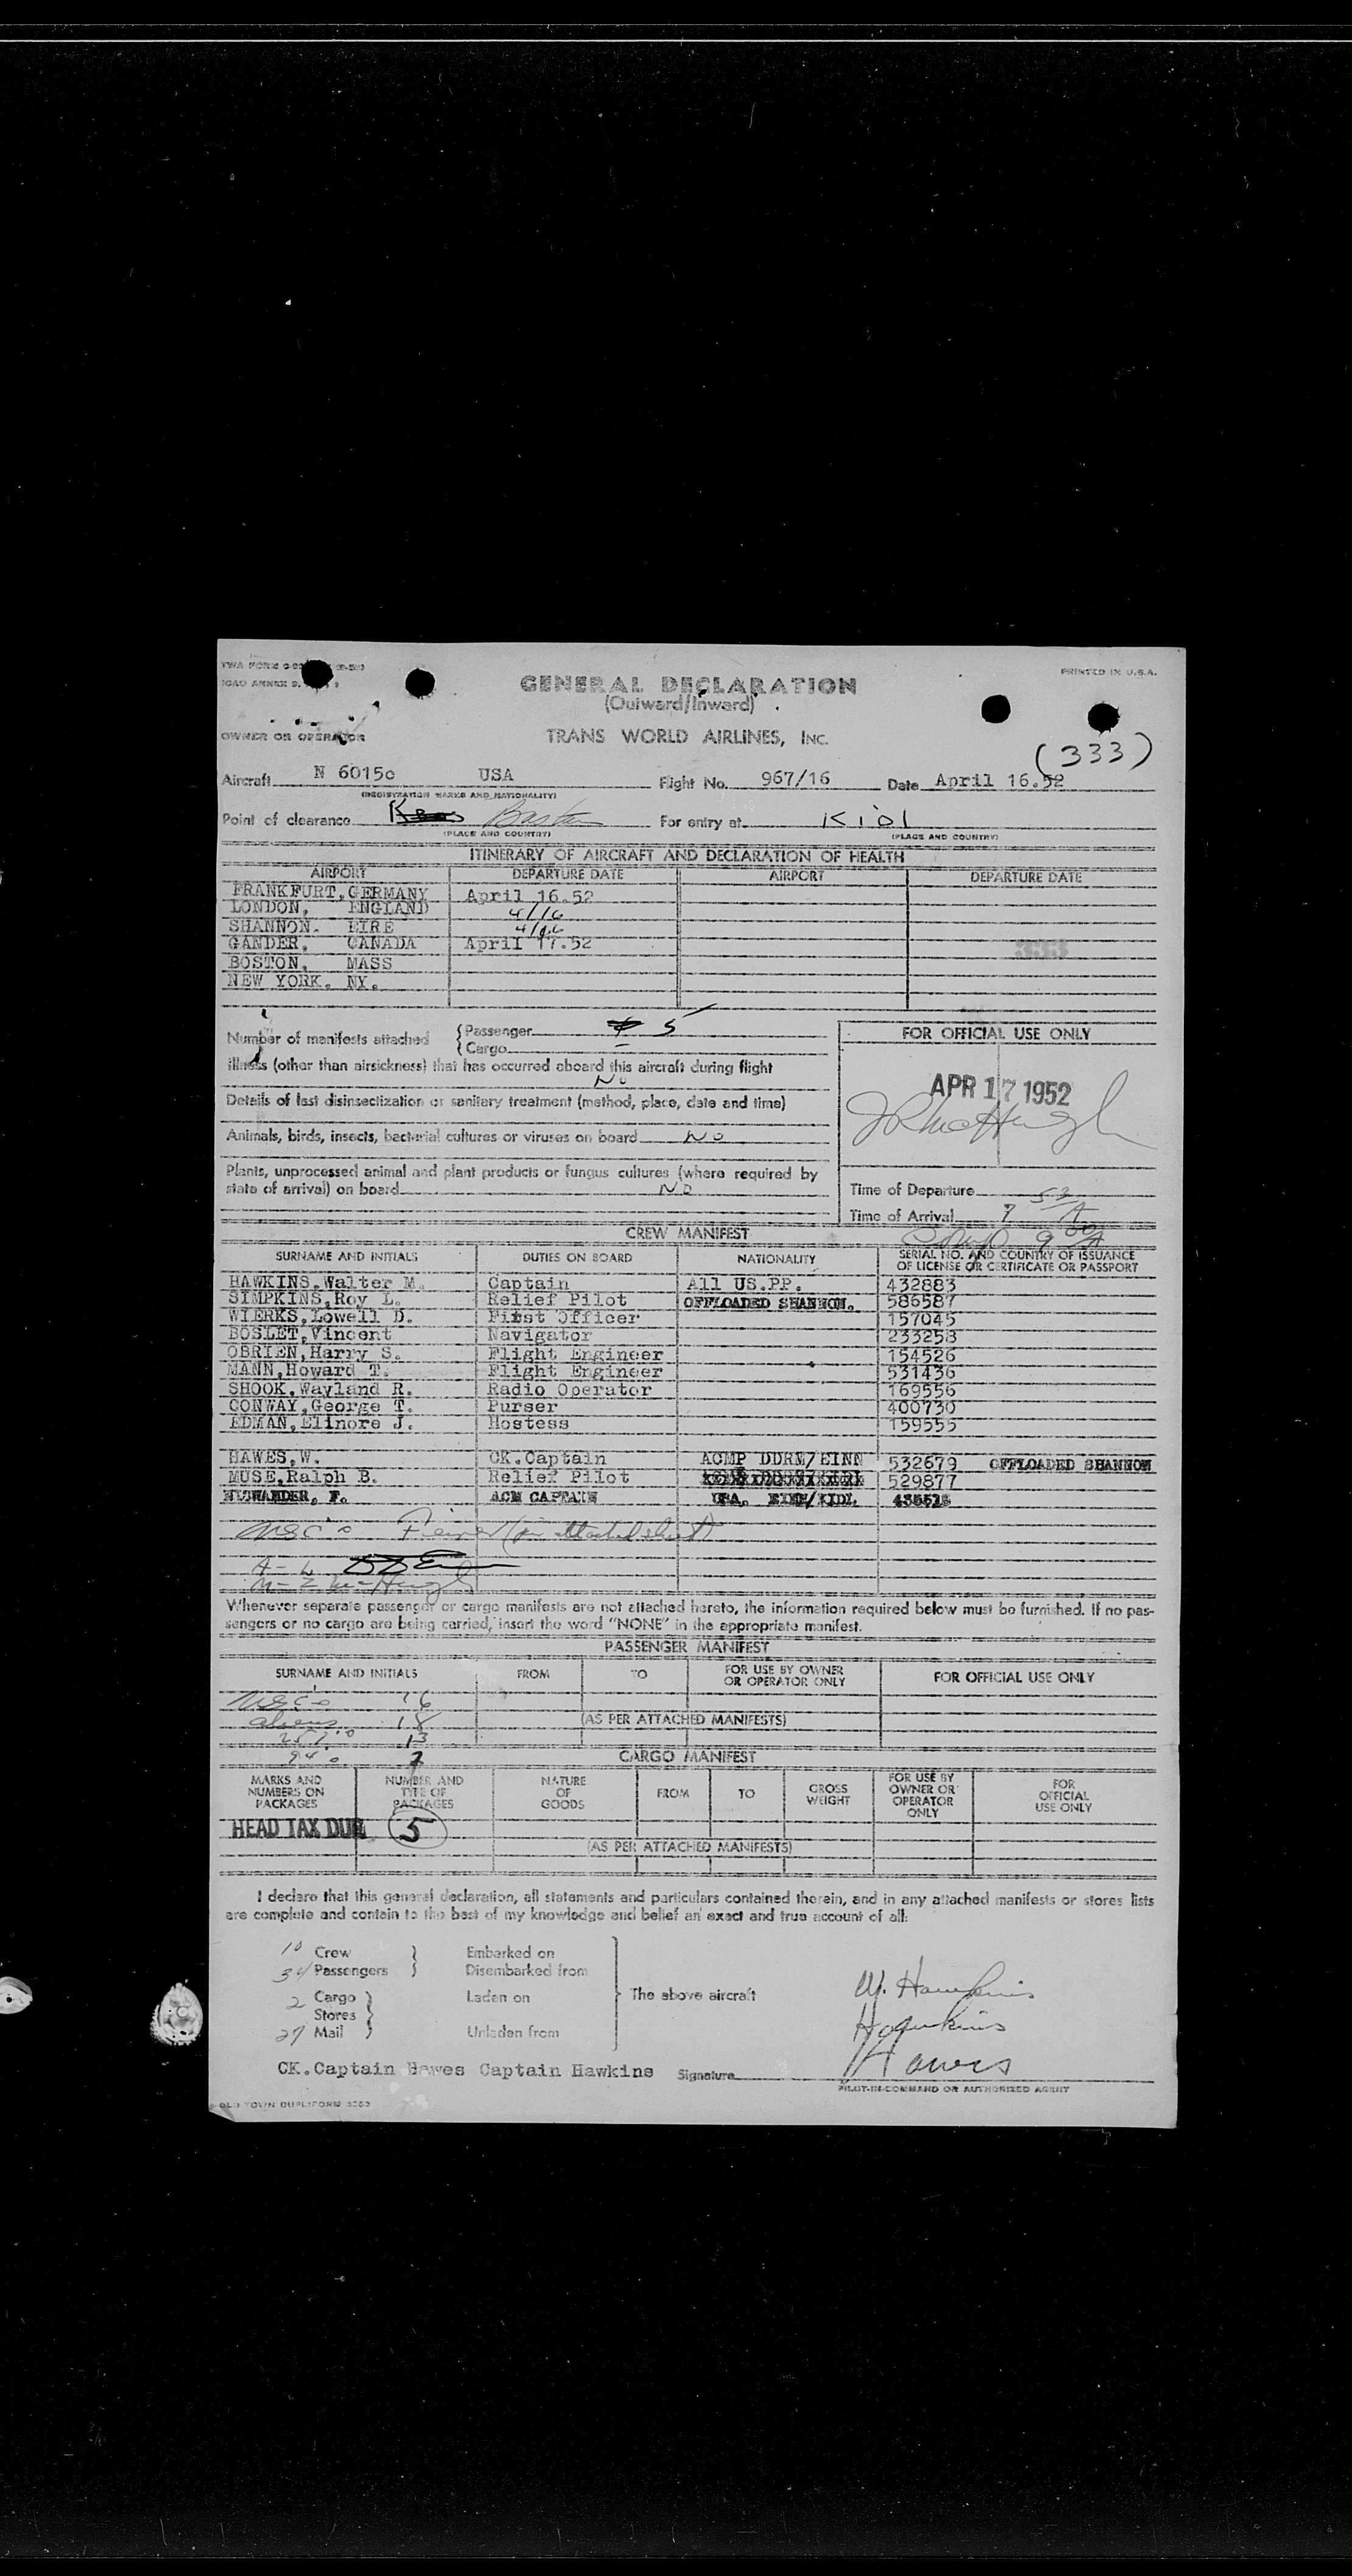 GENERAL DECLARATION
PRINTED IN U.S.A.
(Outward/Inward)
OWNER OR OPERATOR
TRANS WORLD AIRLINES, INC.
(333)
Aircraft N 6015c USA Flight No. 967/16 Date April 16.52
(REGISTRATION MARKS AND NATIONALITY)
Point of clearance For entry at Kidl
(PLACE AND COUNTRY) (PLACE AND COUNTRY)
ITINERARY OF AIRCRAFT AND DECLARATION OF HEALTH
AIRPORT DEPARTURE DATE AIRPORT DEPARTURE DATE
FRANKFURT,GERMANY April 16.52
LONDON, ENGLAND 4/16
SHANNON. EIRE
GANDER, CANADA April 17.52 333
BOSTON, MASS
NEW YORK. NY.
Number of manifests attached {Passenger 5
{Cargo
FOR OFFICIAL USE ONLY
Illness (other than airsickness) that has occurred aboard this aircraft during flight
No
APR 17 1952
Details of last disinsectization or sanitary treatment (method, place, date and time)
Animals, birds, insects, bacterial cultures or viruses on board No
Plants, unprocessed animal and plant products or fungus cultures (where required by
state of arrival) on board No
Time of Departure
Time of Arrival
CREW MANIFEST
SURNAME AND INITIALS DUTIES ON BOARD NATIONALITY SERIAL NO. AND COUNTRY OF ISSUANCE
OF LICENSE OR CERTIFICATE OR PASSPORT
HAWKINS,Walter M. Captain All US.PP. 432883
SIMPKINS,Roy L. Relief Pilot OFFLOADED SHANNON. 586587
WIERKS,Lowell D. First Officer 157045
BOSLET,Vincent Navigator 233258
OBRIEN,Harry S. Flight Engineer 154526
MANN,Howard T. Flight Engineer 531436
SHOOK,Wayland R. Radio Operator 169556
CONWAY,George T. Purser 400730
EDMAN,Elinore J. Hostess 159555
HAWES,W. CK.Captain ACMP DDRM/EINN 532679 OFFLOADED SHANNON
MUSE,Ralph B. Relief Pilot 529877
ACM CAPTAIN USA. EINN/KIDL
Whenever separate passenger or cargo manifests are not attached hereto, the information required below must be furnished. If no pas-
sengers or no cargo are being carried, insert the word "NONE" in the appropriate manifest.
PASSENGER MANIFEST
SURNAME AND INITIALS FROM TO FOR USE BY OWNER
OR OPERATOR ONLY FOR OFFICIAL USE ONLY
16
aliens 18 (AS PER ATTACHED MANIFESTS)
13
CARGO MANIFEST
MARKS AND
NUMBERS ON
PACKAGES NUMBER AND
TYPE OF
PACKAGES NATURE
OF
GOODS FROM TO GROSS
WEIGHT FOR USE BY
OWNER OR
OPERATOR
ONLY FOR
OFFICIAL
USE ONLY
HEAD TAX DUE 5
(AS PER ATTACHED MANIFESTS)
I declare that this general declaration, all statements and particulars contained therein, and in any attached manifests or stores lists
are complete and contain to the best of my knowledge and belief an exact and true account of all:
10 Crew } Embarked on
34 Passengers } Disembarked from
2 Cargo } Laden on The above aircraft
Stores }
27 Mail } Unladen from
W. Hawkins
Hawkins
Hawes
CK.Captain Hawes Captain Hawkins Signature
PILOT-IN-COMMAND OR AUTHORIZED AGENT
OLD TOWN DUPLIFORM